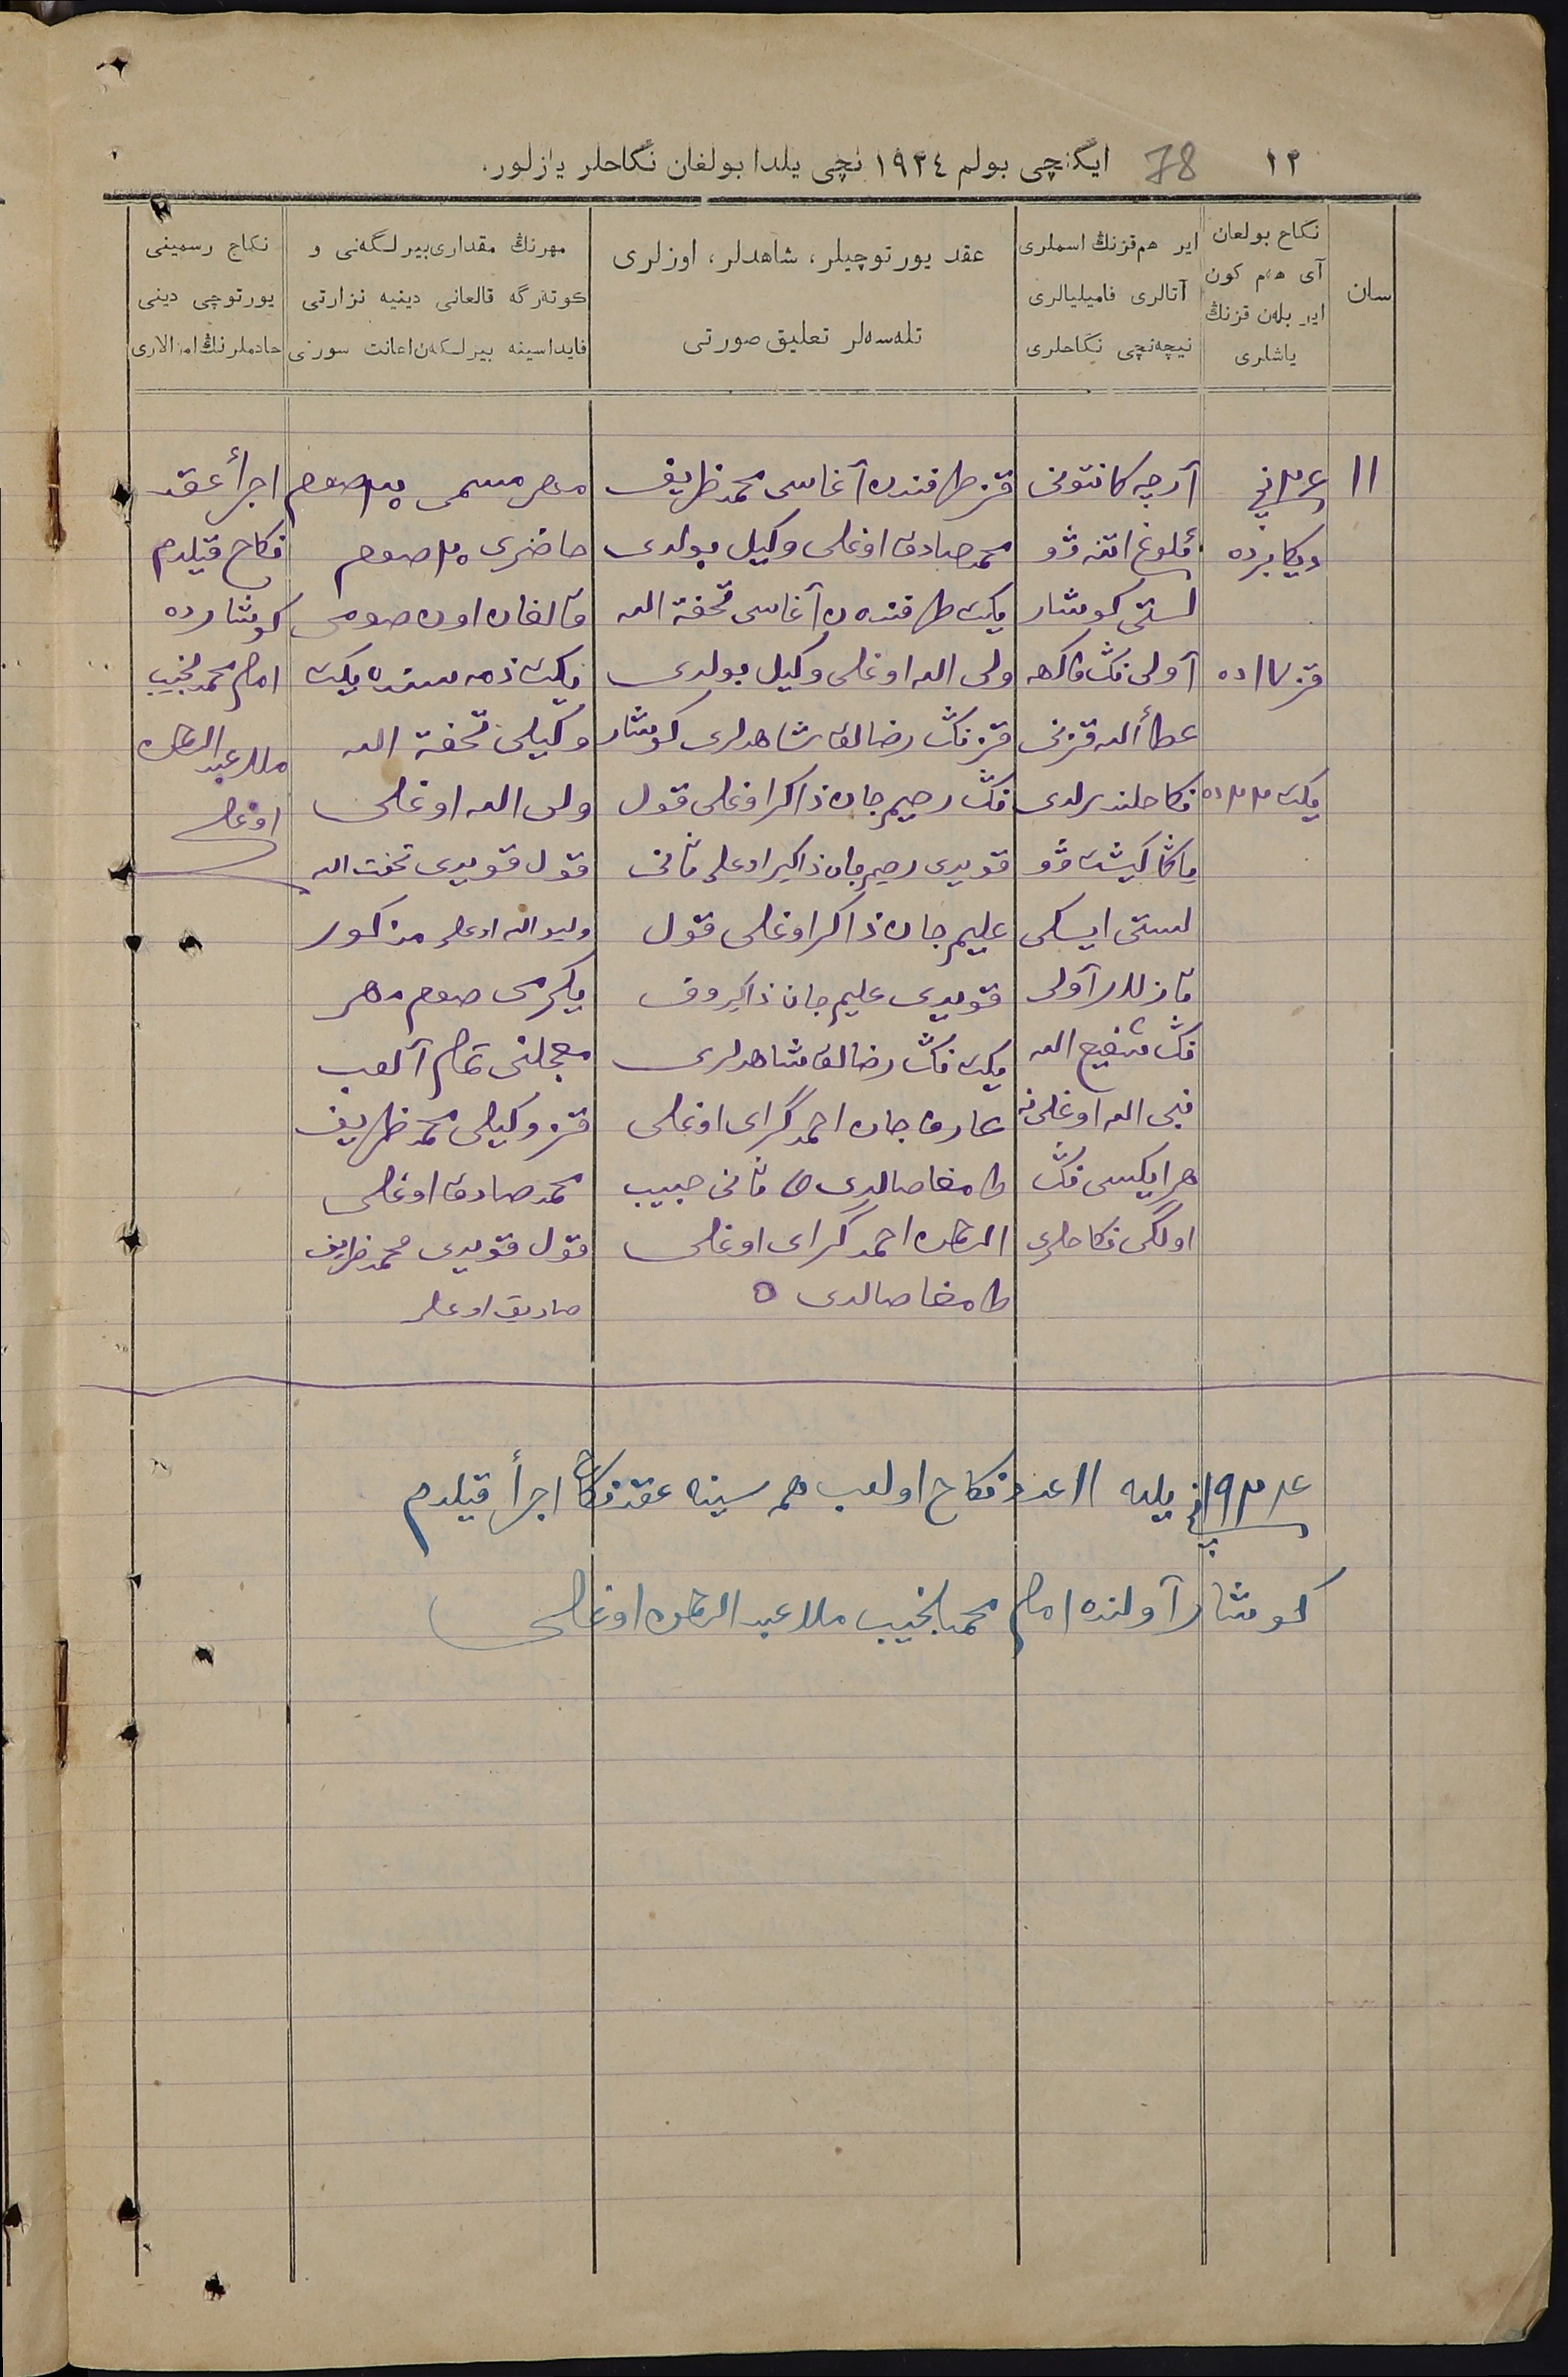 ١٢
78
ایکنچی بولم ١٩٢٤ نچی یلدا بولغان نگاحلر یازلور.
سان
نکاح بولعان
آی هەم کون
ایر بلەن قزنڭ
یاشلری
ایر هم قزنڭ اسملری
آتالری فامیلیالری
نیچەنچی نگاحلری
عقد یورتوچیلر، شاهدلر، اوزلری
تلەسەلر تعلیق صورتی
مهرنڭ مقداری بیرلگەنی و
کوتەرگە قالعانی دینیه نزارتی
فایداسینه بیرلگەن اعانت سورنی
نکاح رسمینی
یورتوچی دینی
خادملرنڭ امزالاری
١١
دیکابرده
قز ١٧ ده
یکت ٢٢ ده
آرچه کانتونی
ئلوغ اتنه
لستی کوشار
آولی نڭ
عطأالله قزنی
نکاحلندرلدی
لستی ایسکی
آولی
نڭ شفیع الله
نبی الله اوغلی نه
هر ایکسی نڭ
اولگی نکاحلری
قز طرفندن آغاسی محمد ظریف
محمد صادق اوغلی وکیل بولدی
یکت طرفندەن آغاسی تحفة الله
ولی الله اوغلی وکیل بولدی
قزنڭ رضالق شاهدلری کوشار
نڭ رحیم جان ذاکر اوغلی قول
قویدی رحیم جان ذاکیر اوغلی ثانی
علیم جان ذاکر اوغلی قول
قویدی علیم جان ذاکیروف
یکت نڭ رضالق شاهدلری
عارف جان احمد گرای اوغلی
طامغا صالدی ثانی حبیب
الرحمن احمد گرای اوغلی
طامغا صالدی
مهر مسمی صوم
حاضری صوم
قالغان اون صومی
یکت ذمه سنده یکت
وکیلی تحفة الله
ولی الله اوغلی
قول قویدی تحفت الله
ولیوالله اوغلی مذکور
یکرمی صوم مهر
معجلنی تمام آلعب
قز وکیلی محمد ظریف
محمد صادق اوغلی
قول قویدی محمد ظریف
صادیق اوغلی
اجرأ عقد
نکاح قیلدم
کوشارده
امام محمد نجیب
ملا عبد الرحمن
اوغلی
نچی یلده ١١ عدد نکاح اولعب همه سینه عقد نکاح اجرأ قیلدم
کوشار آولنده امام محمد نجیب ملا عبد الرحمن اوغلی